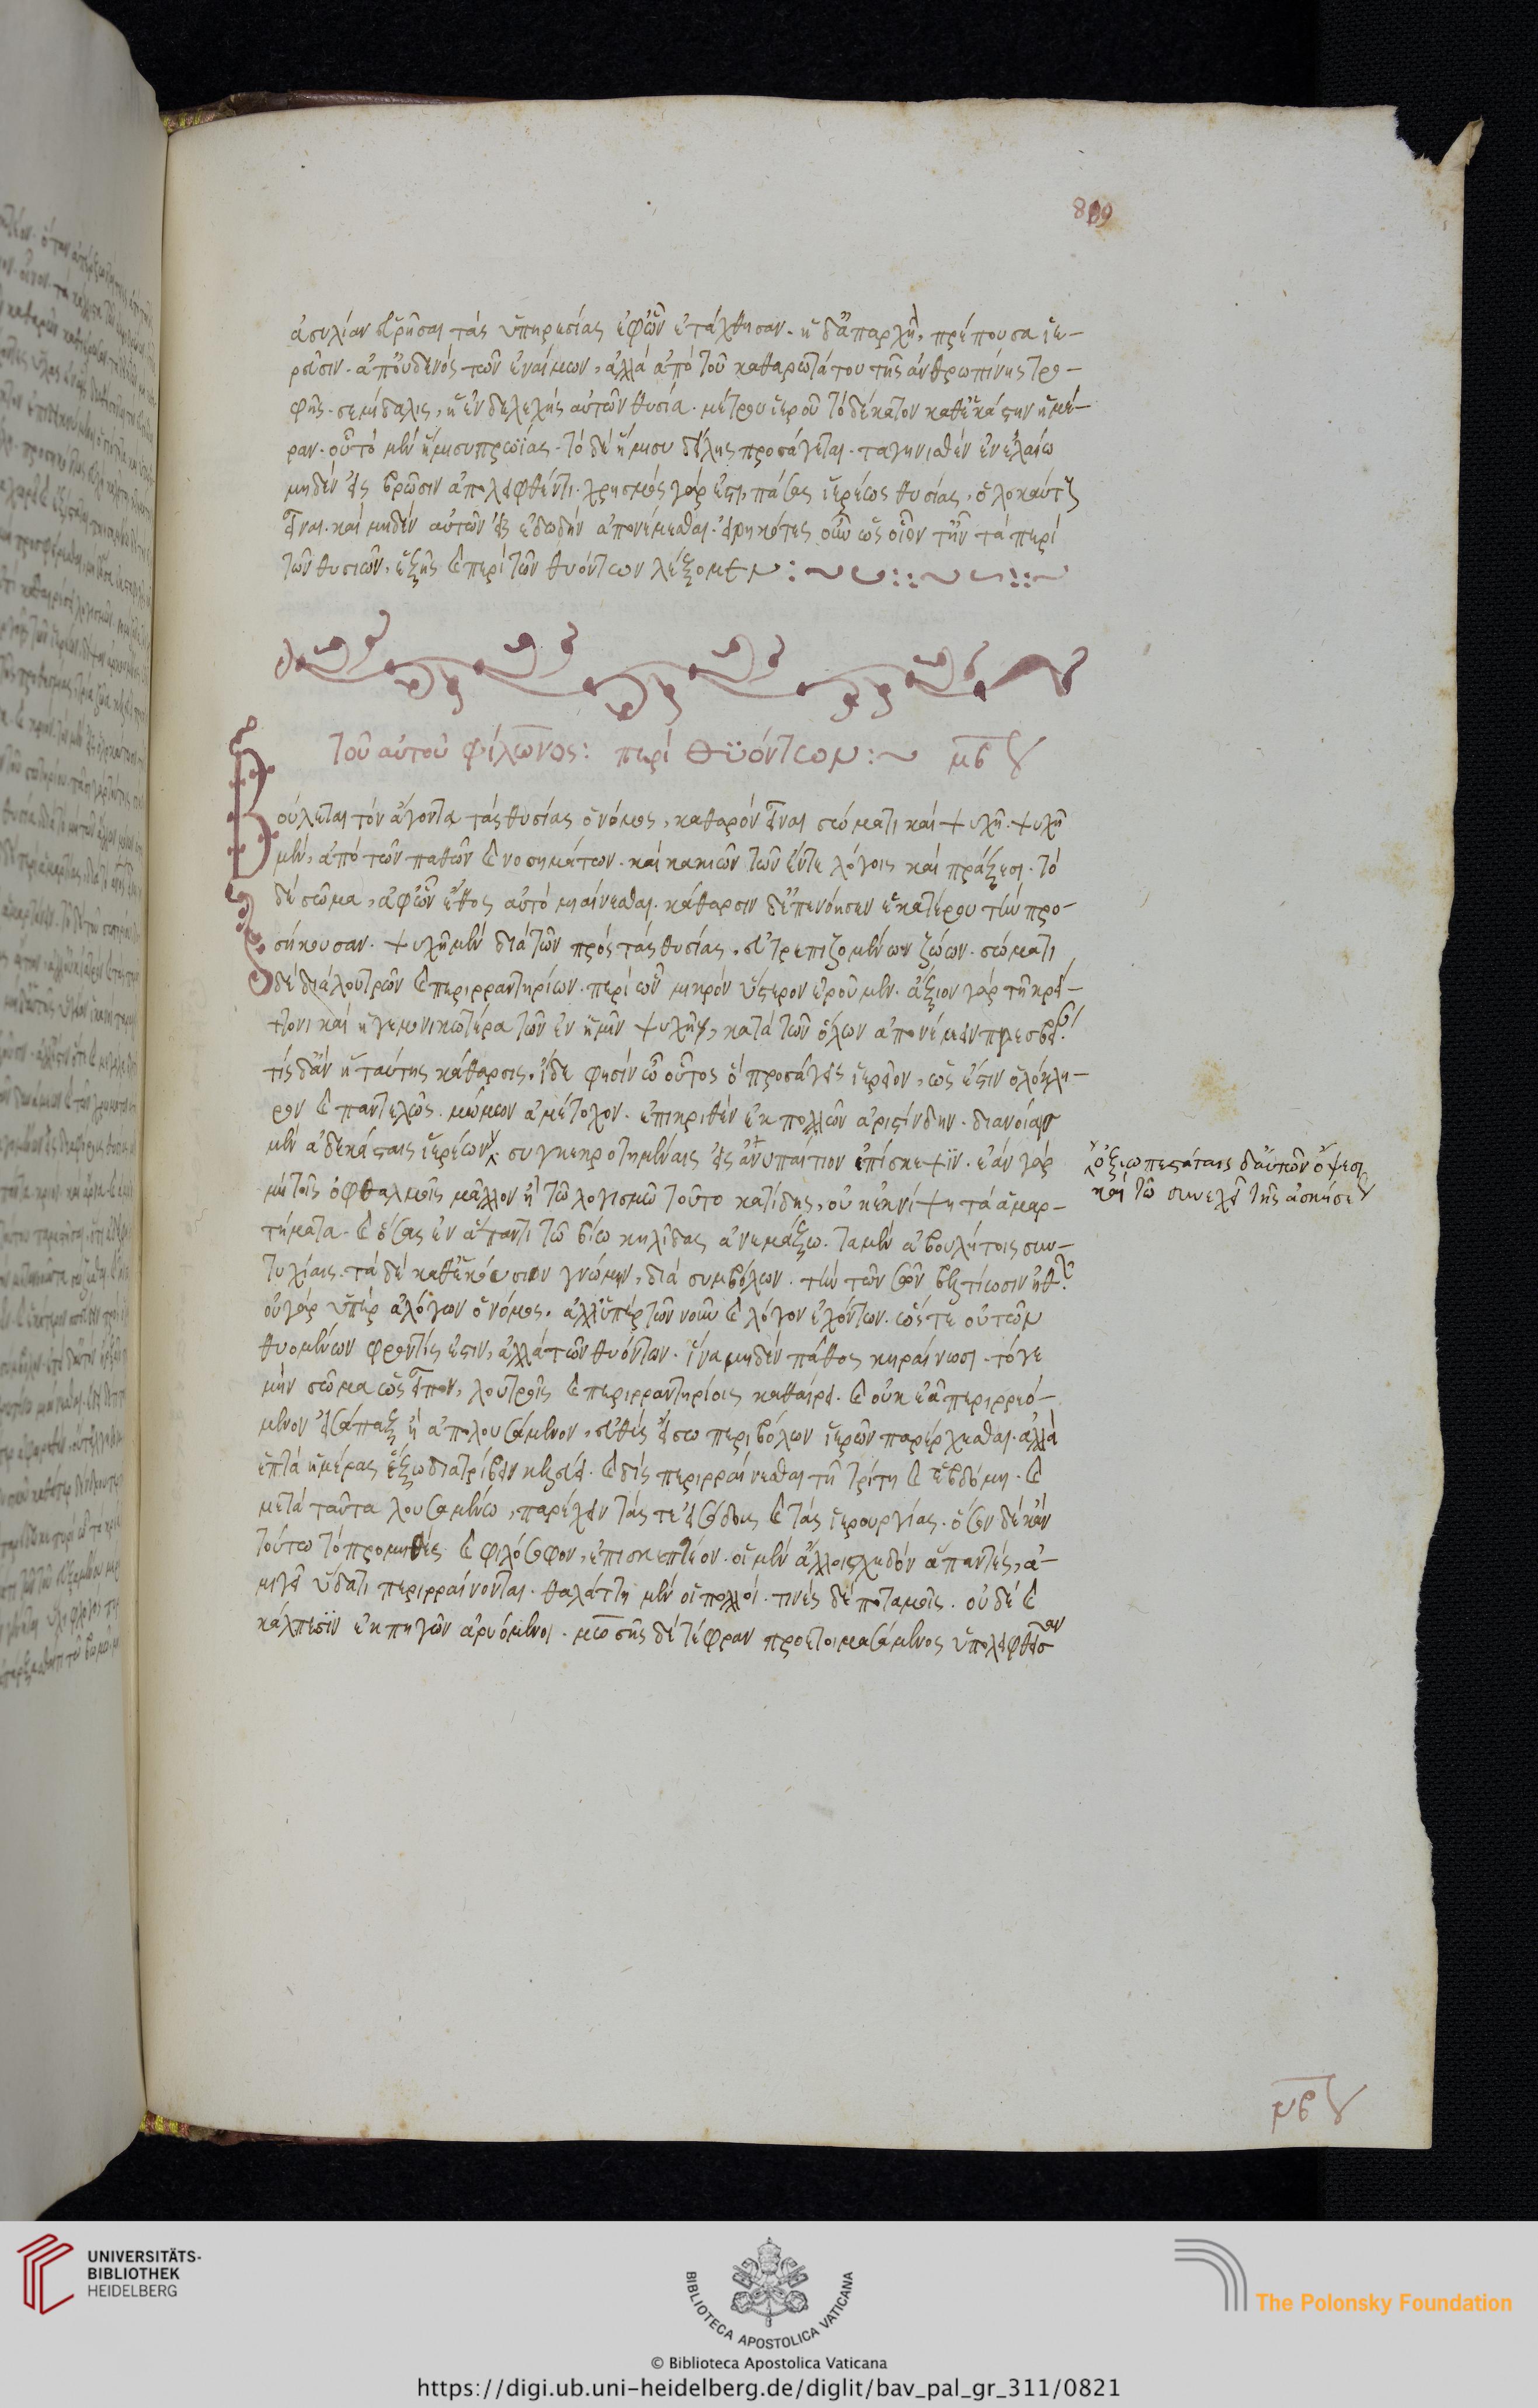 809
ἀσυλίαν εὑρῆσαι τὰς ὑπηρεσίας ἐφ' ὧν ἐτάχθησαν. ἡ δ' ἀπαρχὴ, πρέπουσα ἱε-
ρεῦσιν. ἀπ' οὐδενὸς τῶν ἐναίμων, ἀλλὰ ἀπὸ τοῦ καθαρωτάτου τῆς ἀνθρωπίνης τρο-
φῆς. σεμίδαλις, ἡ ἐνδελεχὴς αὐτῶν θυσία. μέτρου ἱεροῦ τὸ δέκατον καθ' ἑκάστην ἡμέ-
ραν. οὗ τὸ μὲν ἥμισυ πρωΐας. τὸ δὲ ἥμισυ δείλης προσάγεται. ταγηνισθὲν ἐν ἐλαίω
μηδὲν εἰς βρῶσιν ἀπολειφθέντι. χρησμὸς γάρ ἐστι, πάσας ἱερέως θυσίας, ὁλοκαύτους
εἶναι. καὶ μηδὲν αὐτῶν εἰς ἐδωδὴν ἀπονέμεσθαι. εἰρηκότες οὖν ὡς οἷόν τ' ἦν τὰ περὶ
τῶν θυσιῶν, ἑξῆς καὶ περὶ τῶν θυόντων λέξομεν:
τοῦ αὐτοῦ φίλωνος: περὶ θϋόντων: μβ
Βούλεται τὸν ἄγοντα τὰς θυσίας ὁ νόμος, καθαρὸν εἶναι σώματι καὶ ψυχῆ. ψυχῆ
μὲν, ἀπὸ τῶν παθῶν καὶ νοσημάτων. καὶ κακιῶν τῶν ἔν τε λόγοις καὶ πράξεσι. τὸ
δὲ σῶμα, ἀφ' ὧν ἔθος αὐτὸ μιαίνεσθαι. κάθαρσιν δ' ἐπενόησεν ἑκατέρου τὴν προ-
σήκουσαν. ψυχῆ μὲν διὰ τῶν πρὸς τὰς θυσίας, εὐτρεπιζομένων ζώων. σώματι
δὲ διὰ λουτρῶν καὶ περιρραντηρίων. περὶ ὧν μικρὸν ὕστερον ἐροῦμεν. ἄξιον γὰρ τῆ κρεί-
ττονι καὶ ἡγεμονικωτέρα τῶν ἐν ἡμῖν ψυχῆ, κατὰ τῶν ὅλων ἀπονέμειν πρεσβεῖα.
τίς δ' ἂν ἡ ταύτης κάθαρσις. ἴδε φησὶν ὦ οὗτος ὃ προσάγεις ἱερεῖον, ὡς ἔστιν ὁλόκλη-
ρον καὶ παντελῶς. μώμων ἀμέτοχον. ἐπικριθὲν ἐκ πολλῶν ἀριστίνδην. διανοίαις
μὲν ἀδεκάσταις ἱερέων συγκεκροτημέναις εἰς ἀνυπαίτιον ἐπίσκεψϊν. ἐὰν γὰρ
ὀξυωπεστάταις δ' αὐτῶν ὄψεσι
καὶ τῶ συνεχεῖ τῆς ἀσκήσεως
μὴ τοῖς ὀφθαλμοῖς μᾶλλον ἢ τῶ λογισμῶ τοῦτο κατίδης, οὐκ ἐκνίψη τὰ ἁμαρ-
τήματα. καὶ ὅσας ἐν ἅπαντι τῶ βίω κηλῖδας ἀνεμάξω. τὰ μὲν ἀβουλήτοις συν-
τυχίαις. τὰ δὲ καθ' ἑκούσιον γνώμην, διὰ συμβόλων. τὴν τῶν σῶν βελτίωσιν ἠθῶν.
οὐ γὰρ ὑπὲρ ἀλόγων ὁ νόμος. ἀλλ' ὑπὲρ τῶν νοῦν καὶ λόγον ἐχόντων. ὥστε οὐ τῶν
θυομένων φροντίς ἐστιν, ἀλλὰ τῶν θυόντων. ἵνα μηδὲν πάθος κηραίνωσι. τό γε
μὴν σῶμα ὡς εἶπον, λουτροῖς καὶ περιρραντηρίοις καθαίρει. καὶ οὐκ ἐᾶ περιρρεό-
μενον εἰσάπαξ ἢ ἀπολουσάμενον, εὐθὺς εἴσω περιβόλων ἱερῶν παρέρχεσθαι. ἀλλὰ
ἑπτὰ ἡμέρας ἔξω διατρίβειν κελεύει. καὶ δὶς περιρραίνεσθαι τῆ τρίτη καὶ ἑβδόμη. καὶ
μετὰ ταῦτα λουσαμένω, παρέχειν τάς τε εἰσόδους καὶ τὰς ἱερουργίας. ὅσον δὲ κἀν
τούτω τὸ προμηθὲς καὶ φιλόσοφον, ἐπισκεπτέον. οἱ μὲν ἄλλοι σχεδὸν ἅπαντες, ἀ-
μιγεῖ ὕδατι περιρραίνονται. θαλάττη μὲν οἱ πολλοί. τινὲς δὲ ποταμοῖς. οὐδὲ καὶ
κάλπεσϊν ἐκ πηγῶν ἀρυόμενοι. μωσῆς δὲ τέφραν προετοιμασάμενος ὑπολειφθεῖσαν
μβ
UNIVERSITÄTS-
BIBLIOTHEK
HEIDELBERG
BIBLIOTECA APOSTOLICA VATICANA
© Biblioteca Apostolica Vaticana
The Polonsky Foundation
https://digi.ub.uni-heidelberg.de/diglit/bav_pal_gr_311/0821